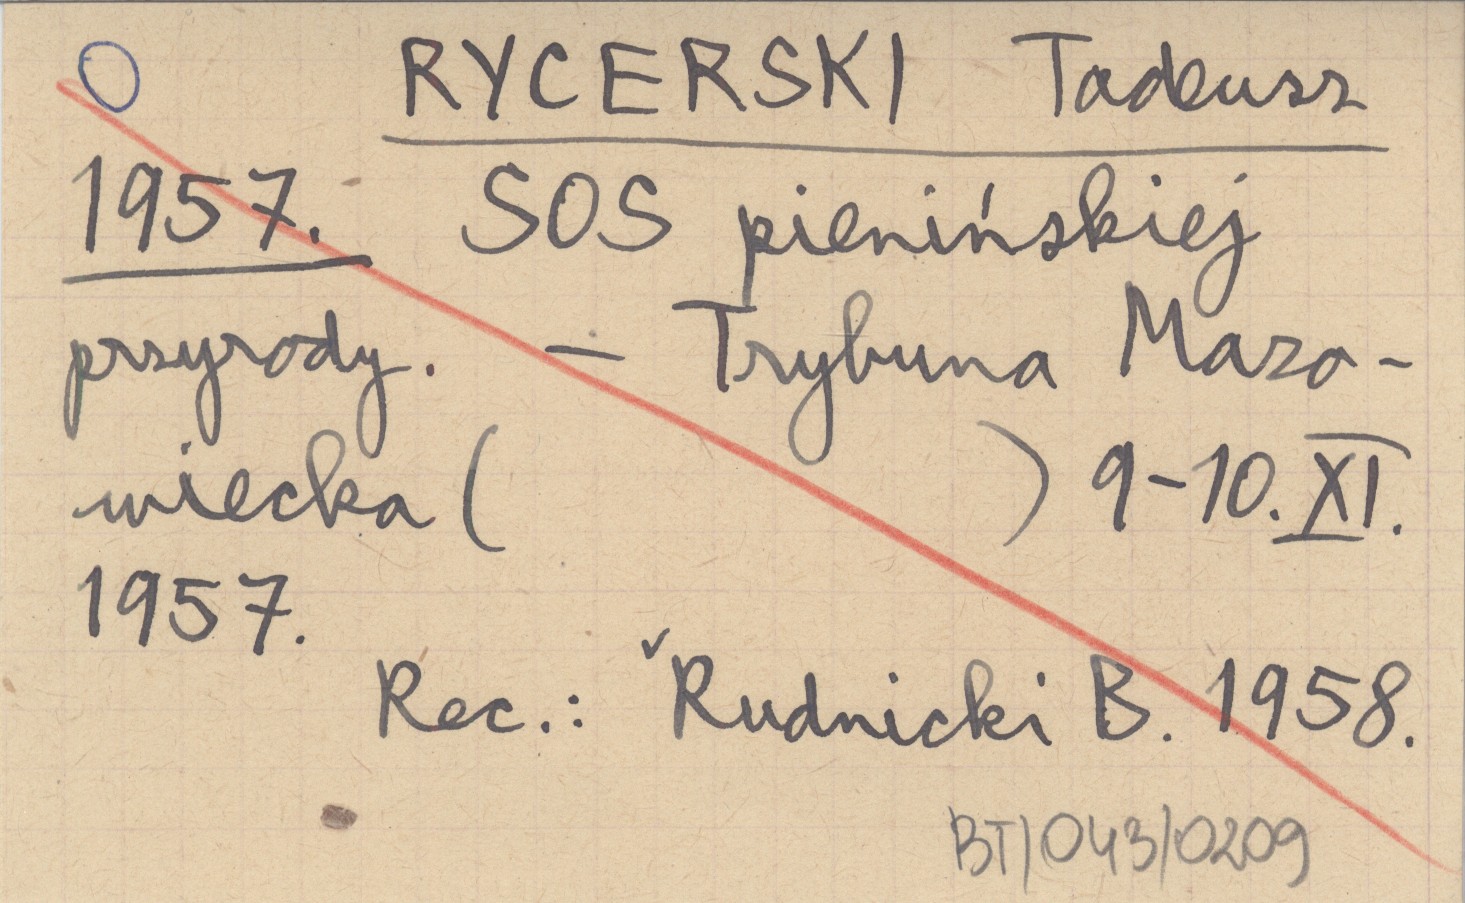 O
RYCERSKI Tadeusz
1957. SOS pienińskiej
przyrody. — Trybuna Mazo-
wiecka ( ) 9-10. XI.
1957.
Rec.: ✓Rudnicki B. 1958.
BT/043/0209